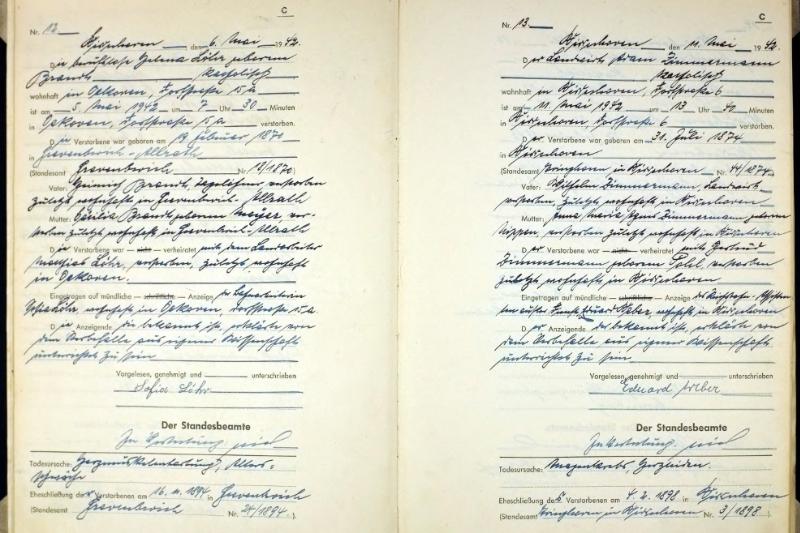 C
Nr. 12.
den 6. Mai 1942
Die berufslose Helena Löhr geborene
Brandt, katholisch
wohnhaft in Oekoven, Dorfstrasse 15a
ist am 5. Mai 1942 um 7 Uhr 30 Minuten
in Oekoven, Dorfstrasse 15a verstorben.
Die Verstorbene war geboren am 19. Februar 1870
in Grevenbroich-Allrath
(Standesamt Grevenbroich Nr. 12/1870)
Vater: Heinrich Brandt, verstorben
zuletzt wohnhaft in Grevenbroich-Allrath
Mutter: Cecilia Brandt geborene Meyer, ver-
storben zuletzt wohnhaft in Grevenbroich-Allrath
Die Verstorbene war nicht verheiratet mit dem Landarbeiter
Mathias Löhr, verstorben, zuletzt wohnhaft
in Oekoven.
Eingetragen auf mündliche schriftliche Anzeige der
Sofia Löhr, wohnhaft in Oekoven, Dorfstrasse 15a
Die Anzeigende ist bekannt. Sie erklärte von
dem Sterbefalle aus eigener Wissenschaft
unterrichtet zu sein
Vorgelesen, genehmigt und unterschrieben
Sofia Löhr
Der Standesbeamte
In Vertretung
Todesursache: Herzmuskelentartung, Alters-
schwäche
Eheschließung der Verstorbenen am 16. 11. 1894 in Grevenbroich
(Standesamt Grevenbroich Nr. 24/1894)
C
Nr. 13.
den 11. Mai 1942.
Der Landwirt Adam Zimmermann
katholisch
wohnhaft in Dorfstrasse 6
ist am 11. Mai 1942 um 13 Uhr 30 Minuten
in Dorfstrasse 6 verstorben.
Der Verstorbene war geboren am 31. Juli 1874
in
(Standesamt in Nr. 44/1874)
Vater: Wilhelm Zimmermann, Landwirt
verstorben, zuletzt wohnhaft in
Mutter: Anna Maria Agnes Zimmermann geborene
verstorben zuletzt wohnhaft in
Der Verstorbene war nicht verheiratet mit Gertrud
Zimmermann geborene Pohl, verstorben
zuletzt wohnhaft in
Eingetragen auf mündliche schriftliche Anzeige des
Eduard Weber, wohnhaft in
Der Anzeigende ist bekannt. Er erklärte von
dem Sterbefalle aus eigener Wissenschaft
unterrichtet zu sein
Vorgelesen, genehmigt und unterschrieben
Eduard Weber
Der Standesbeamte
In Vertretung
Todesursache: Magenkrebs, Herzleiden.
Eheschließung des Verstorbenen am 4. 2. 1898 in
(Standesamt in Nr. 3/1898)